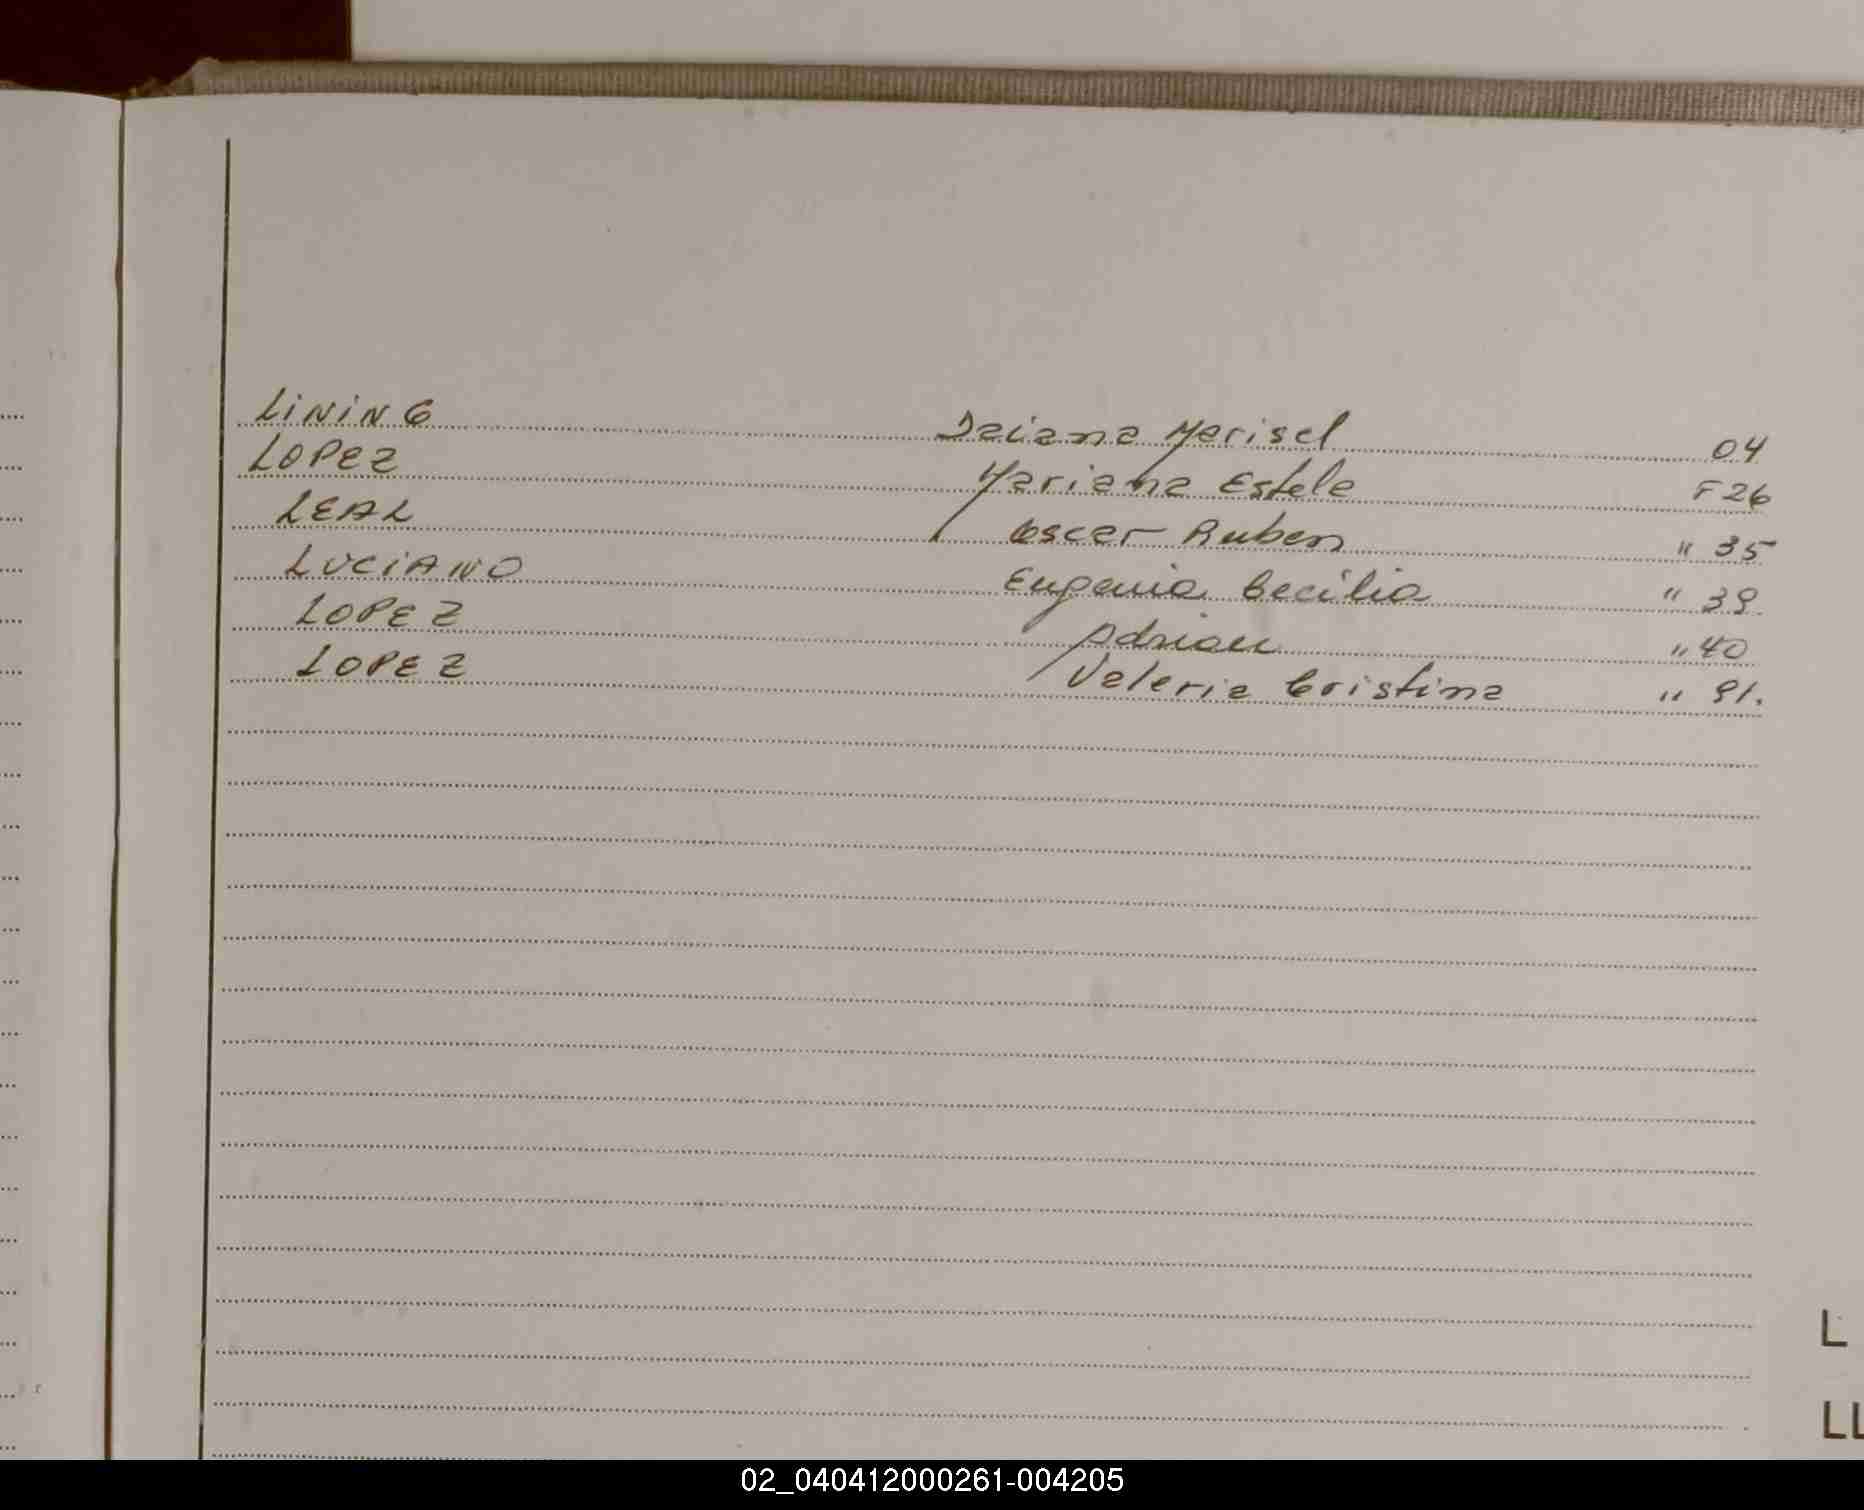 LININg Daiana Marisel 04
LOPEZ Mariana Estela F 26
LEAL Oscar Ruben " 35
LUCIANO Eugenia Cecilia " 39
LOPEZ Adrian " 40
LOPEZ Valeria Cristina " 91.
L
LL
02_040412000261-004205